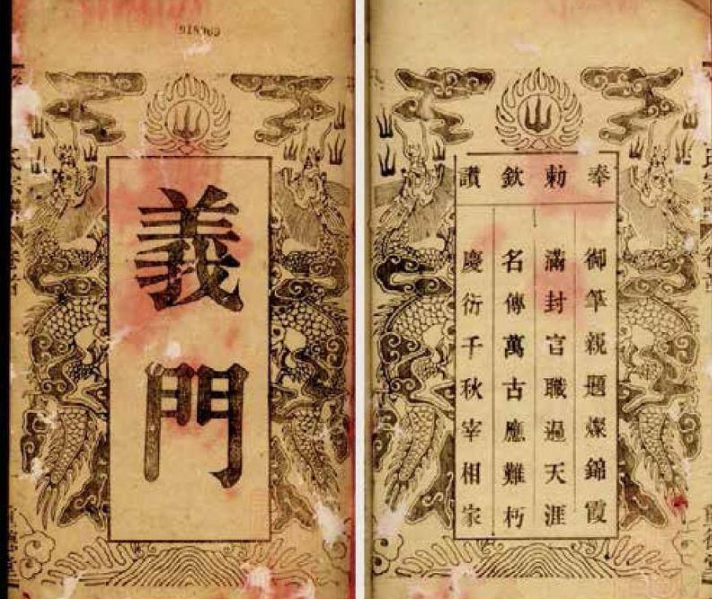 義門
奉勅欽讃
御筆親題燦錦霞
滿封官職過天涯
名傳萬古應難朽
慶衍千秋宰相家
氏宗譜